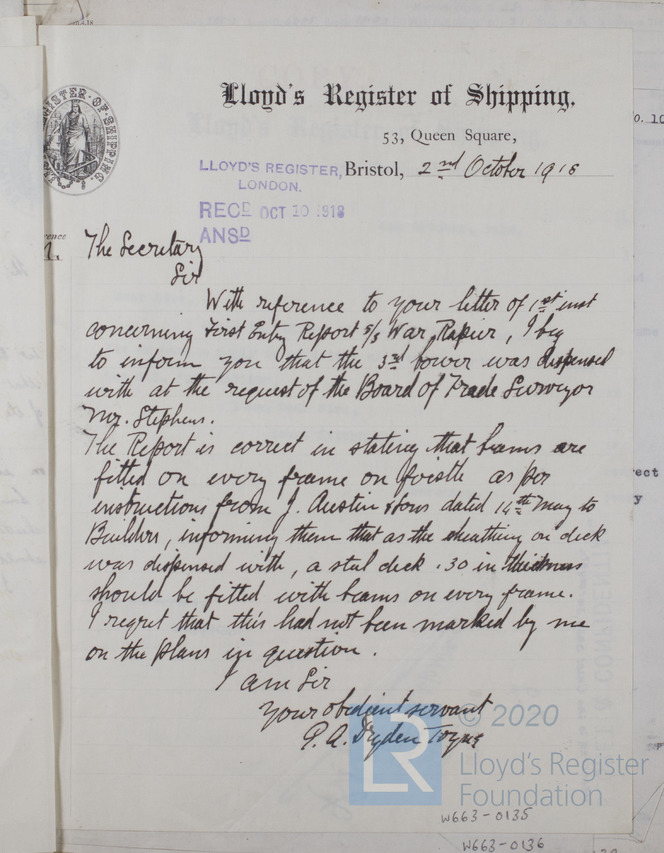 Lloyd's Register of Shipping.
53, Queen Square,
LLOYD'S REGISTER,
LONDON.
Bristol, 2nd October 1918
RECD OCT 10 1918
ANSD
The Secretary
Sir
With reference to your letter of 1st inst
concerning First Entry Report S/S War, I beg
to inform you that the 3rd bower was dispensed
with at the request of the Board of Trade Surveyor
Mr. Stephens.
The Report is correct in stating that beams are
fitted on every frame on focstle as per
instructions from J. Austin & Sons dated 14th May to
Builders, informing them that as the sheathing on deck
was dispensed with, a steel deck .30 in thickness
should be fitted with beams on every frame.
I regret that this had not been marked by me
on the plans in question.
I am Sir
Your obedient servant
© 2020
LR
Lloyd's Register
Foundation
W663-0135
W663-0136